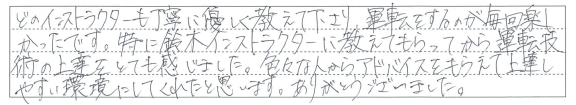 どのインストラクターも丁寧に優しく教えて下さり 運転をするのが毎回楽し
かったです。特に鈴木インストラクターに教えてもらってから運転技
術の上達をとても感じました。色々な人からアドバイスをもらえて上達し
やすい環境にしてくれたと思います。ありがとうございました。